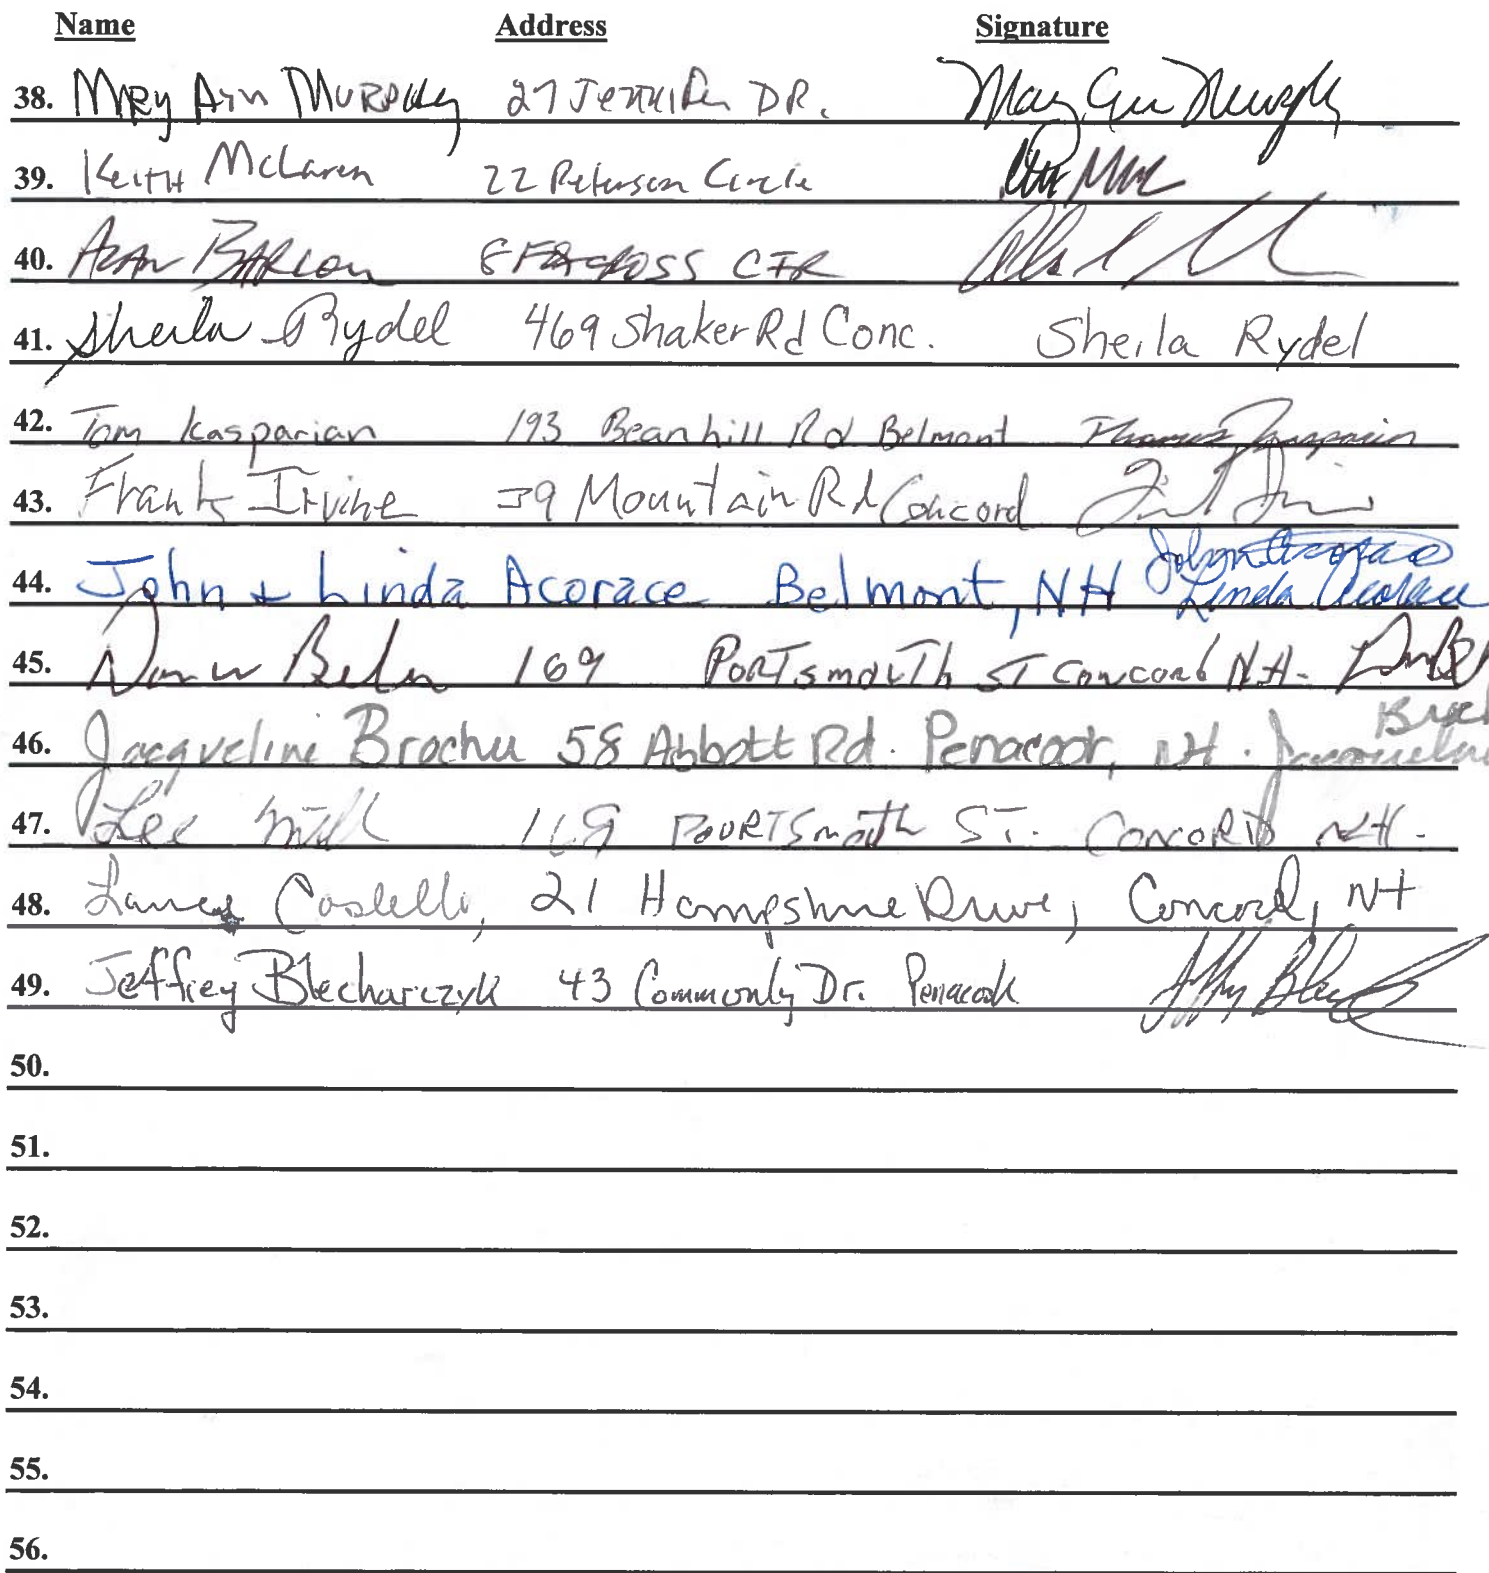 Name Address Signature
38. Mary Ann Murphy 27 Jennifer DR. Mary Ann Murphy
39. Keith McLaren 22 Peterson Circle
40. Alan Barlow 8 CIR
41. Sheila Rydel 469 Shaker Rd Conc. Sheila Rydel
42. Tom Kasparian 193 Bean hill Rd Belmont Thomas Kasparian
43. Frank Irvine 39 Mountain Rd Concord
44. John + Linda Acorace Belmont, NH John Acorace
Linda Acorace
45. 169 Portsmouth ST Concord N.H.
46. Jacqueline Brochu 58 Abbott Rd. Penacook, NH. Jacqueline
47. Lee 169 PourTsmoth ST. Concord NH.
48. Costello, 21 Hampshire Drive, Concord, NH
49. Jeffrey Blecharczyk 43 Community Dr. Penacook
50.
51.
52.
53.
54.
55.
56.